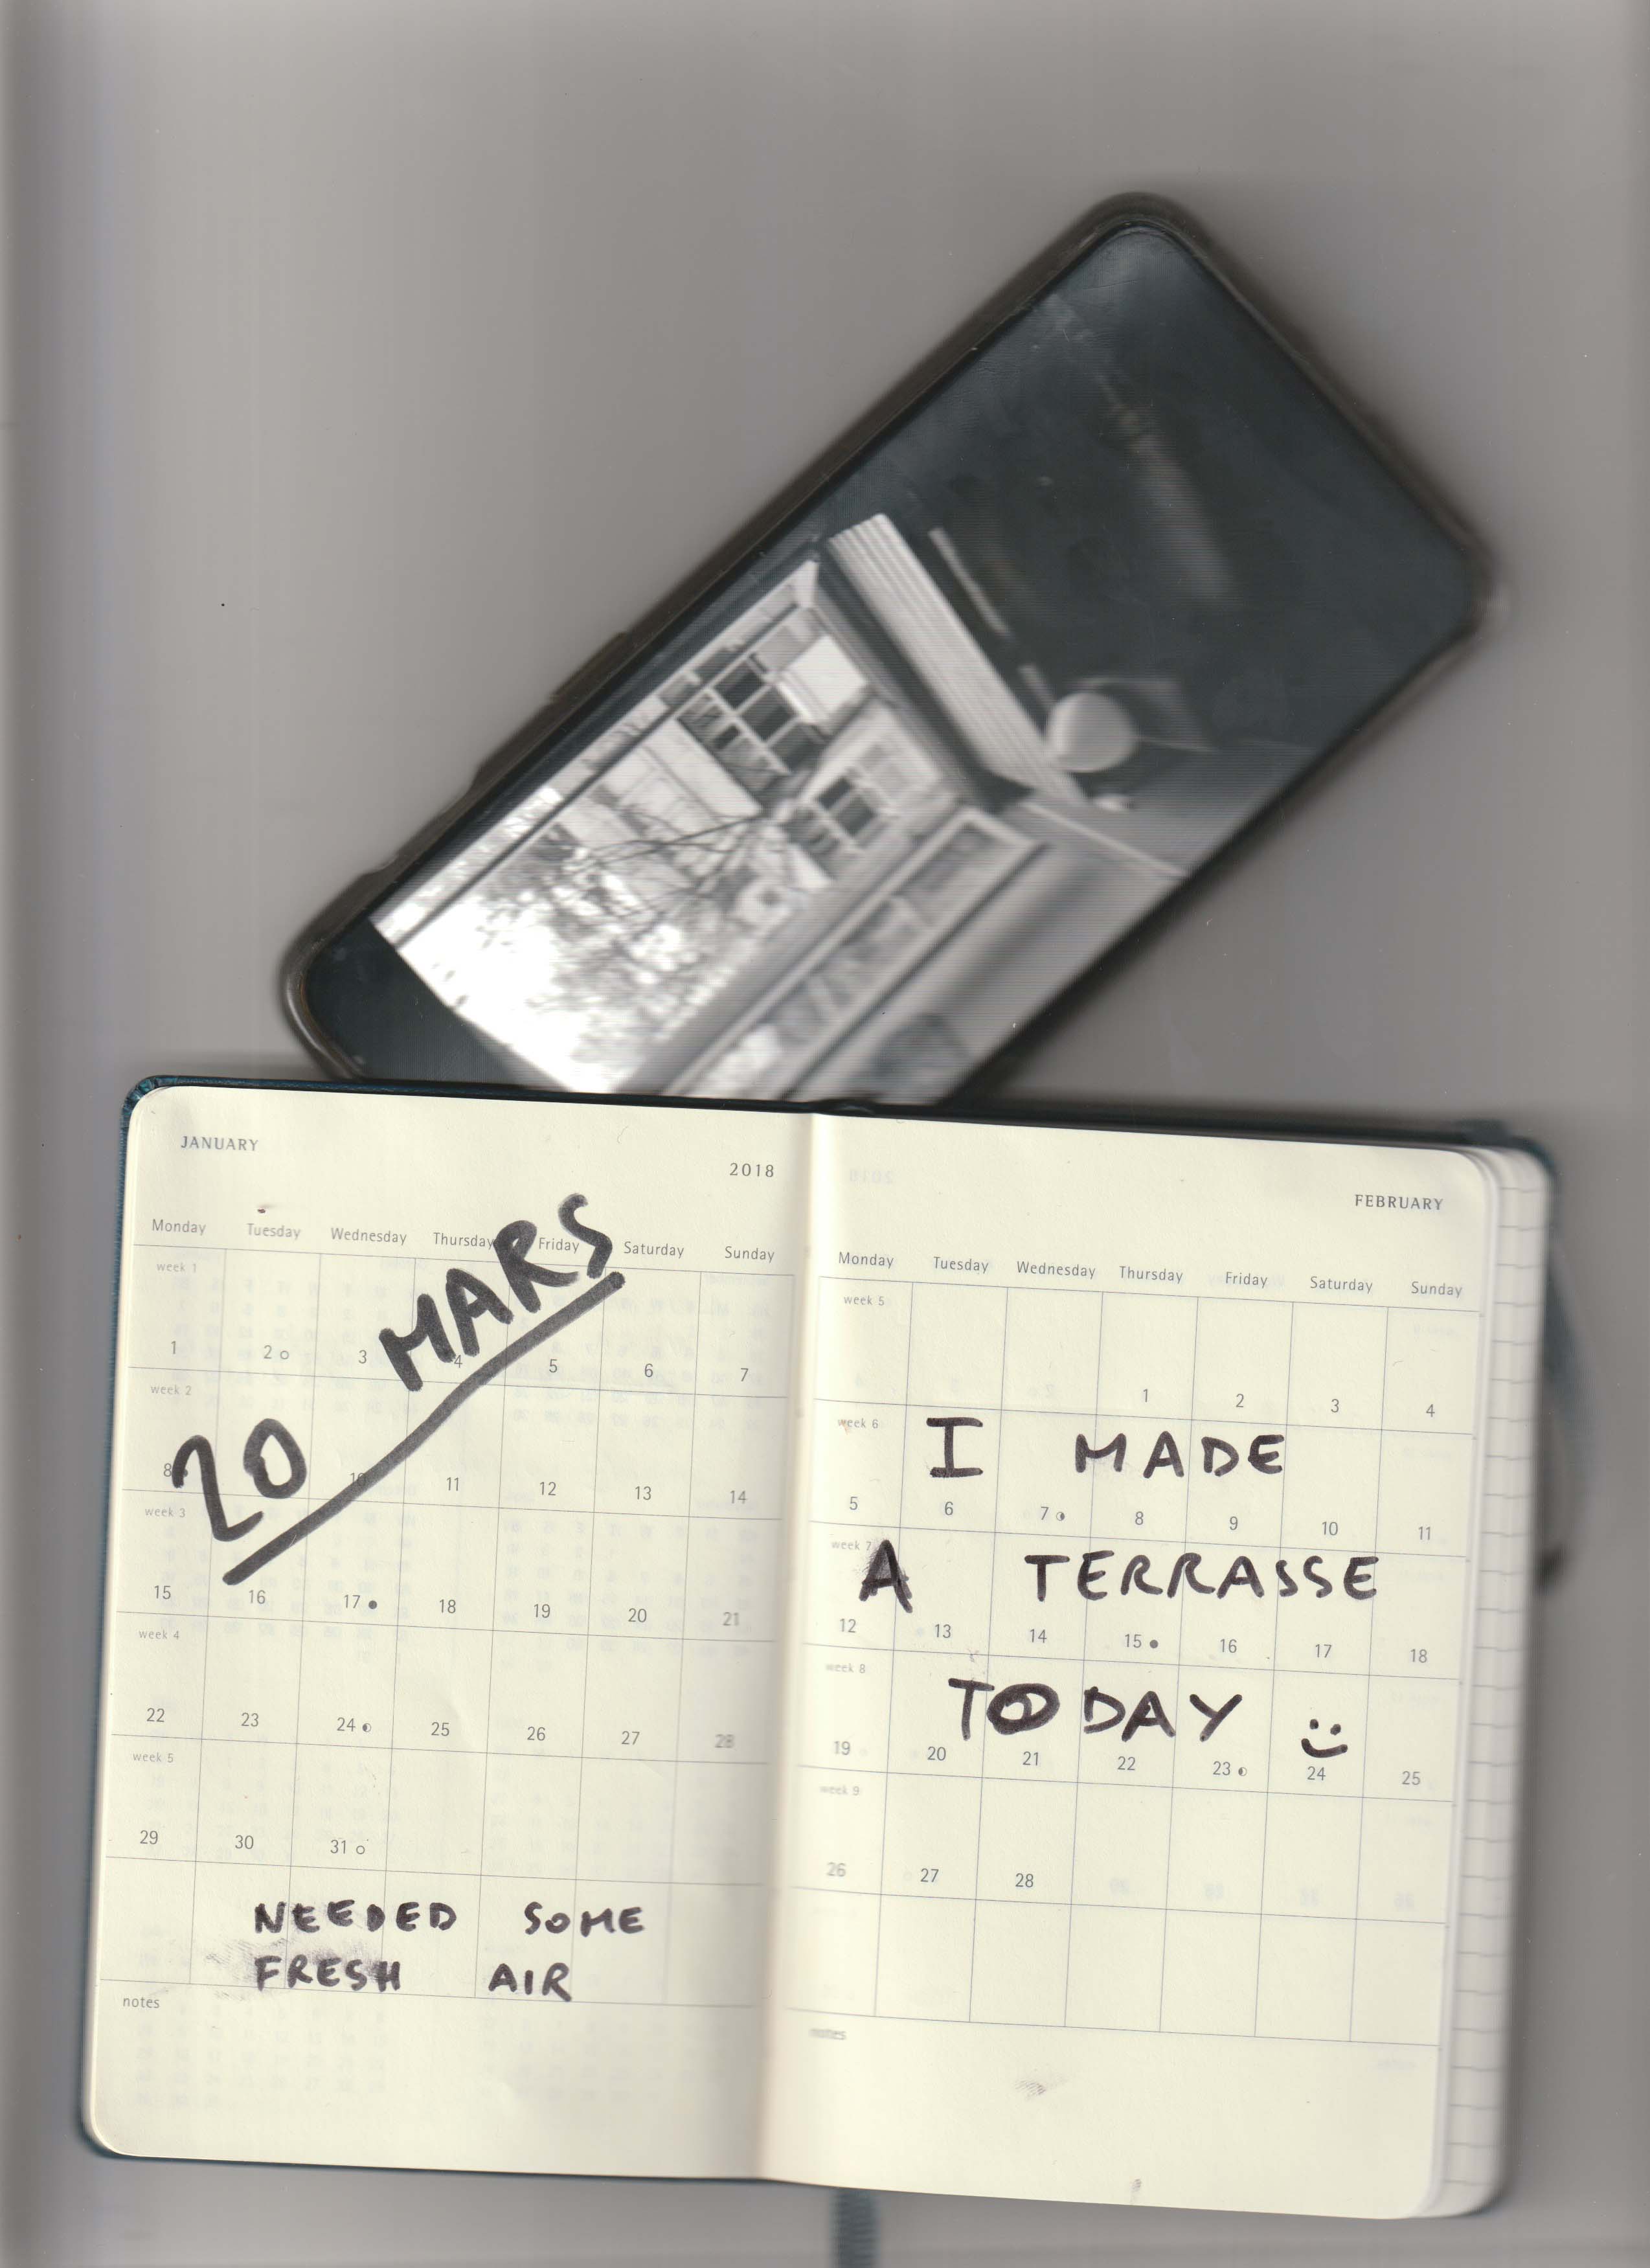 JANUARY
2018
Monday Tuesday Wednesday Thursday Friday Saturday Sunday
20 MARS
week 1
1 2 ○ 3 4 5 6 7
week 2
8 10 11 12 13 14
week 3
15 16 17 ● 18 19 20 21
week 4
22 23 24 ◐ 25 26 27 28
week 5
29 30 31 ○
NEEDED SOME
FRESH AIR
notes
FEBRUARY
Monday Tuesday Wednesday Thursday Friday Saturday Sunday
week 5
1 2 3 4
week 6
I MADE
5 6 7 ◑ 8 9 10 11
week 7
A TERRASSE
12 13 14 15 ● 16 17 18
week 8
TODAY :)
19 20 21 22 23 ◐ 24 25
week 9
26 27 28
notes